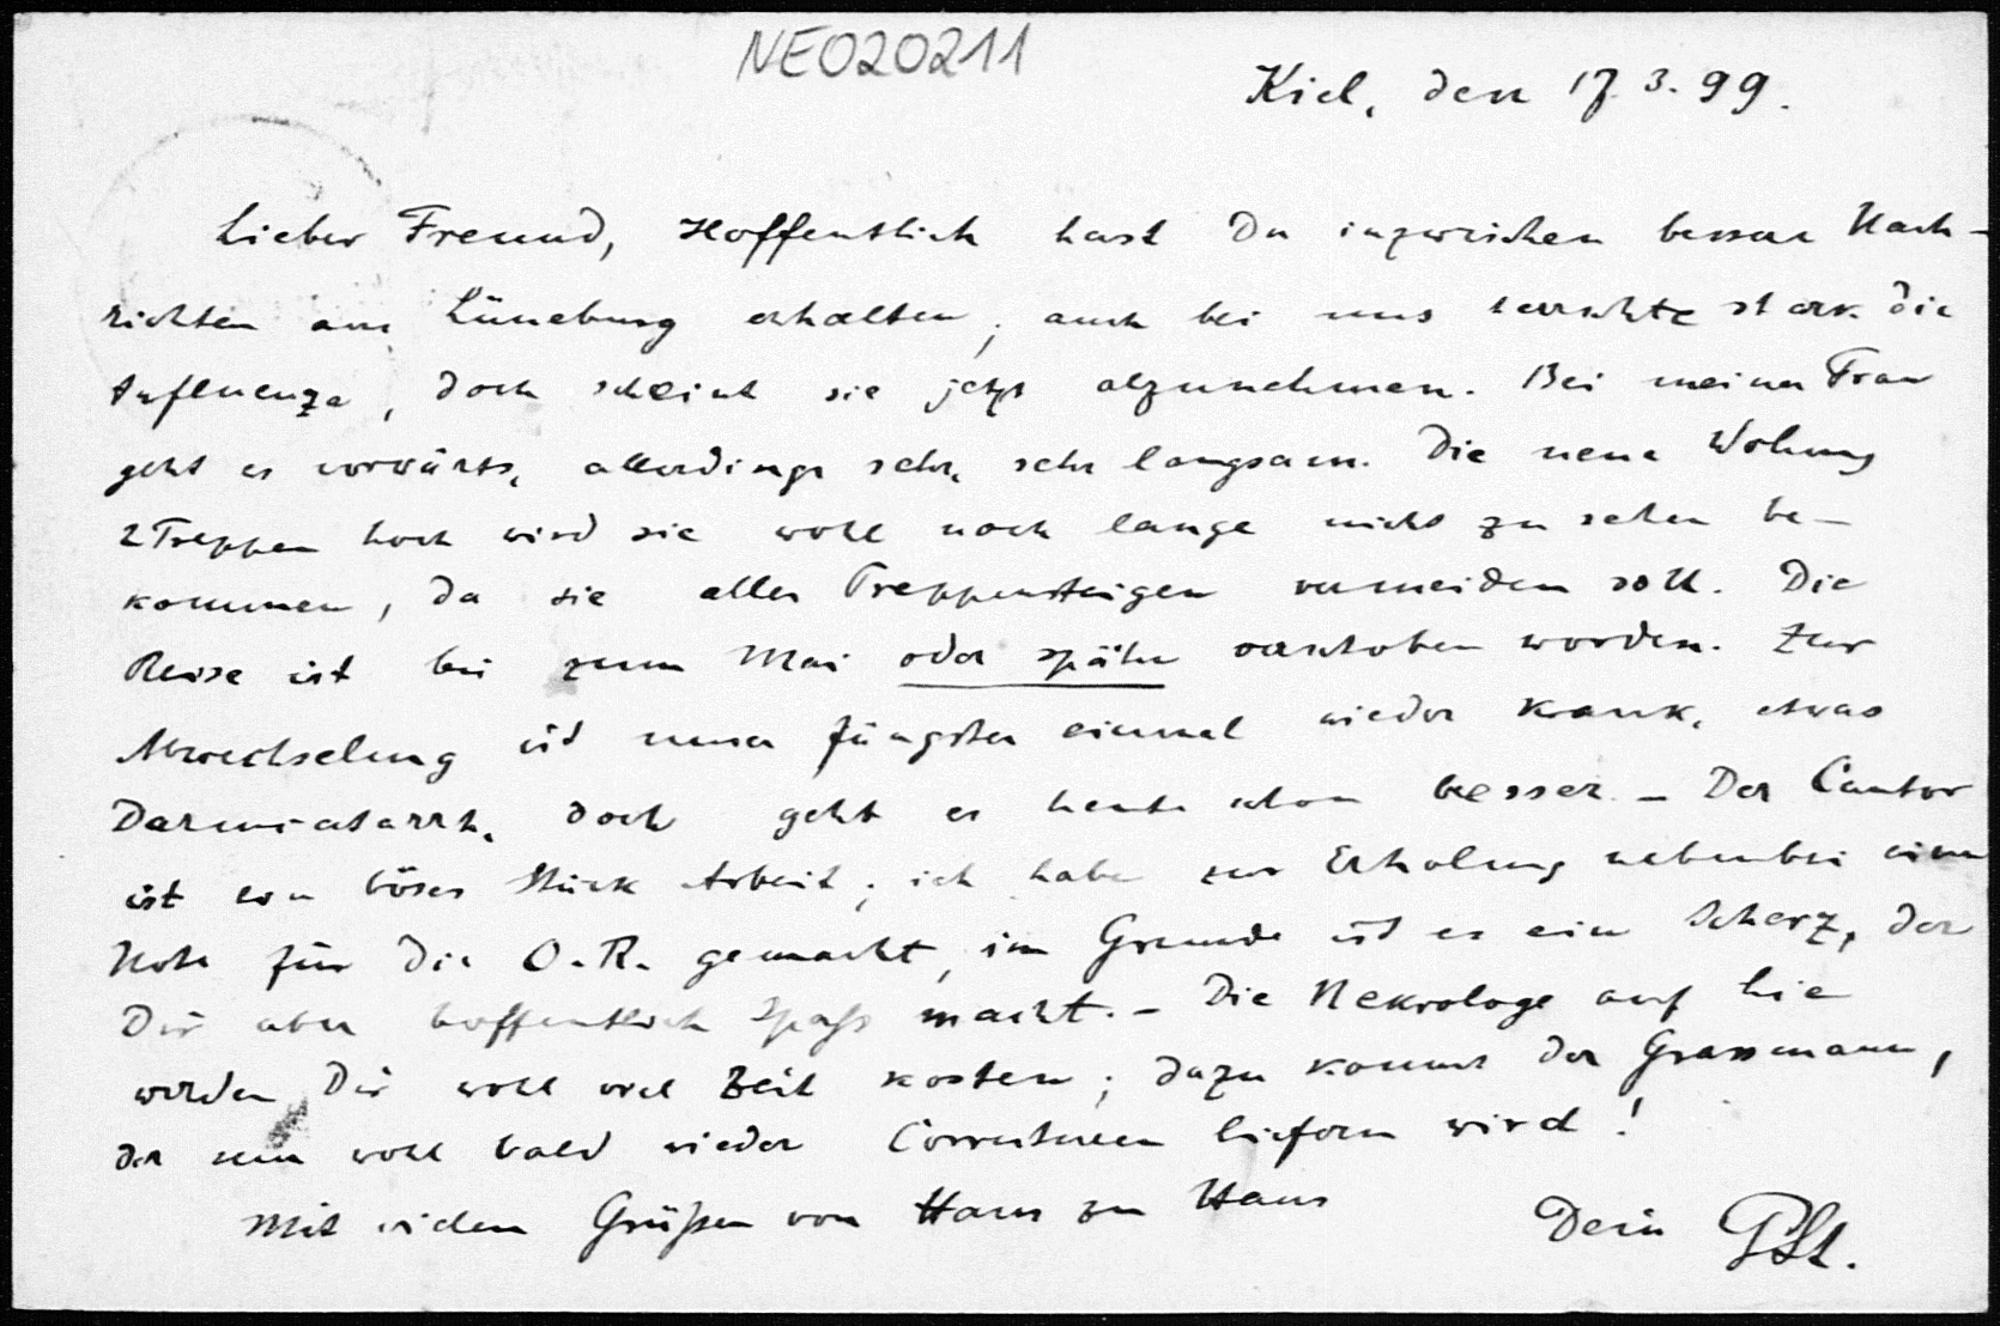 NE020211
Kiel, den 17.3.99.
Lieber Freund, Hoffentlich hast Du inzwischen bessere Nach-
richten aus Lüneburg erhalten; auch bei uns herrschte stark die
Influenza, doch scheint sie jetzt abzunehmen. Bei meiner Frau
geht es vorwärts, allerdings sehr, sehr langsam. Die neue Wohnung
2 Treppen hoch wird sie wohl noch lange nicht zu sehen be-
kommen, da sie alles Treppensteigen vermeiden soll. Die
Reise ist bis zum Mai oder später verschoben worden. Zur
Abwechselung ist unser Jüngster einmal wieder krank, etwas
Darmcatarrh, doch geht es heute schon besser. – Der Cantor
ist ein böses Stück Arbeit; ich habe zur Erholung nebenbei eine
Note für die O.R. gemacht, im Grunde ist es ein Scherz, der
Dir aber hoffentlich Spaß macht. – Die Nekrologe auf Lie
werden Dir wohl viel Zeit kosten; dazu kommt der Grassmann,
der nun wohl bald wieder Correcturen liefern wird!
Mit vielen Grüßen von Haus zu Haus
Dein PSt.